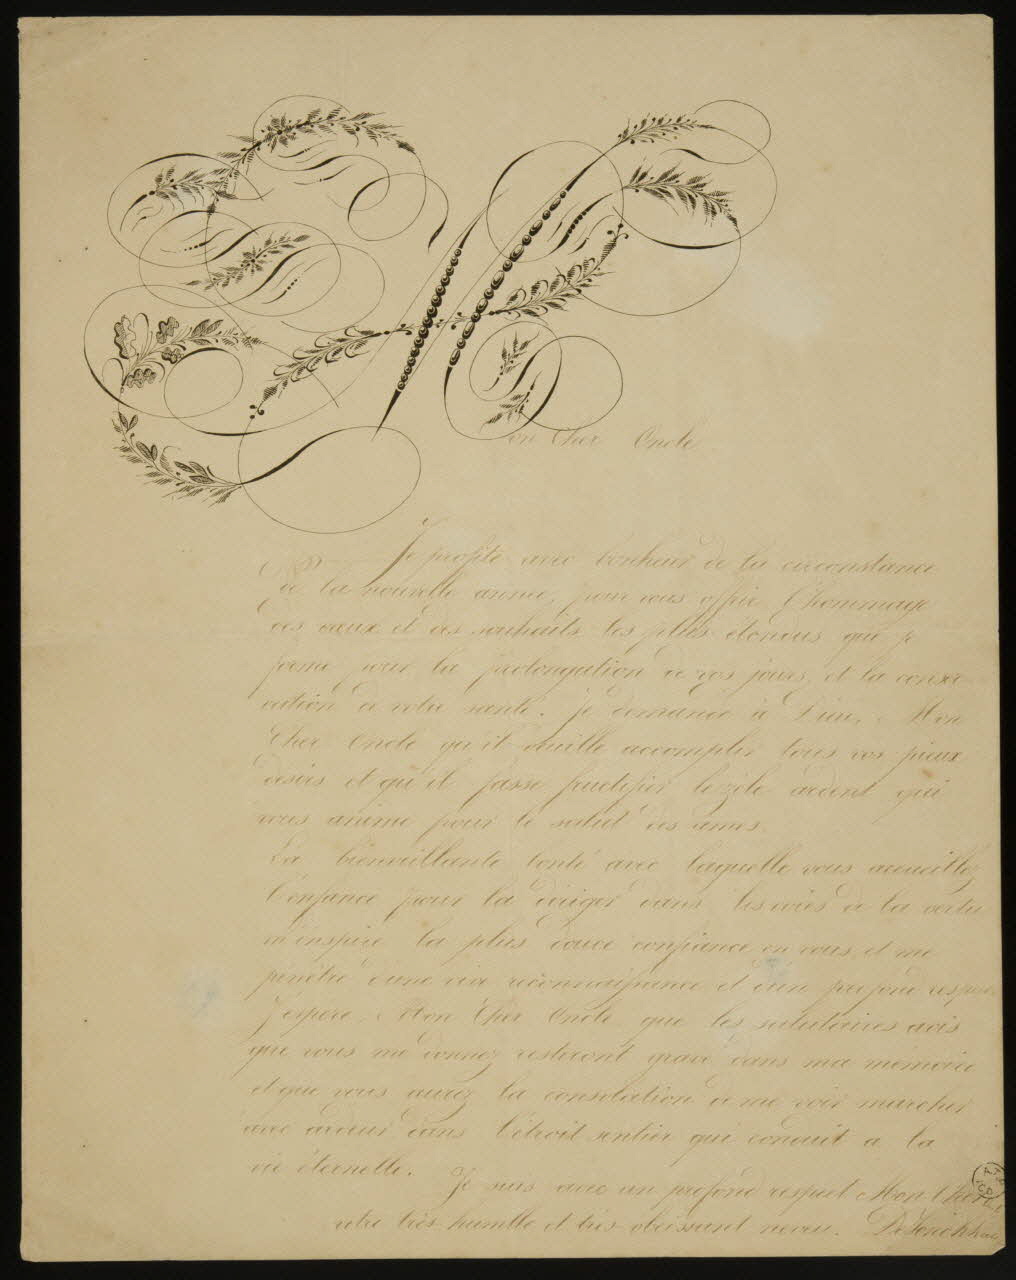 Mon Cher Oncle
Je profite avec bonheur de la circonstance
de la nouvelle année, pour vous offrir l'hommage
des vœux et des souhaits les plus étendus que je
forme pour la prolongation de vos jours, et la conser
vation de votre santé. Je demande à Dieu, Mon
Cher Oncle qu'il veuille accomplir tous vos pieux
désirs et qu'il fasse fructifier le zèle ardent qui
vous anime pour le salut des âmes.
La bienveillante bonté avec laquelle vous accueillez
l'enfance pour la diriger dans les voies de la vertu
m'inspire la plus douce confiance en vous et me
pénètre d'une vive reconnaissance et d'un profond respect
J'espère, Mon Cher Oncle, que les salutaires avis
que vous me donnez resteront gravé dans ma mémoire
et que vous aurez la consolation de me voir marcher
avec ardeur dans l'étroit sentier qui conduit a la
vie éternelle.
Je suis avec un profond respect Mon Cher
votre très humble et très obéissant neveu.